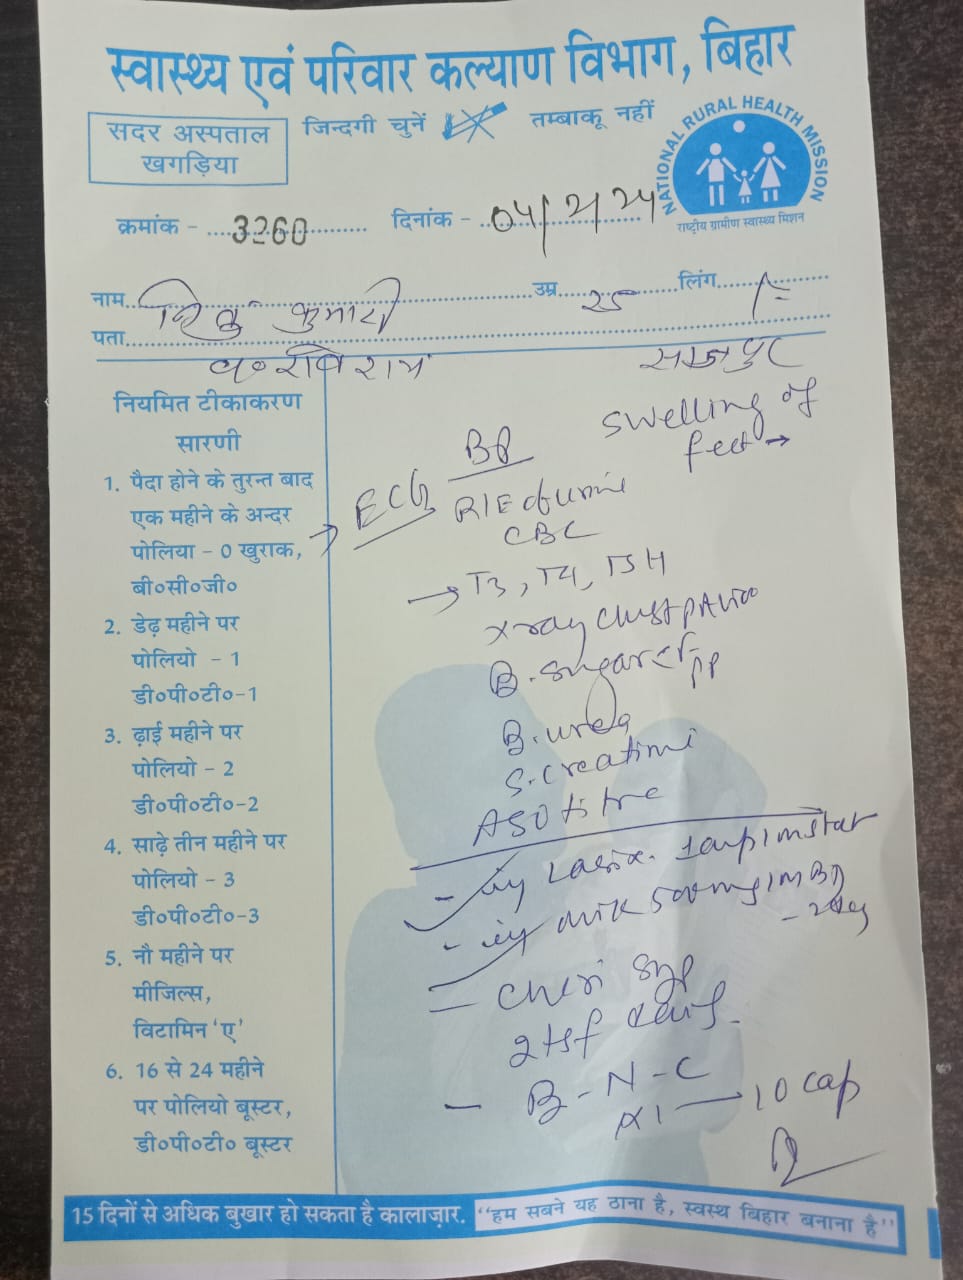 स्वास्थ्य एवं परिवार कल्याण विभाग, बिहार
सदर अस्पताल
खगड़िया
जिन्दगी चुनें तम्बाकू नहीं
NATIONAL RURAL HEALTH MISSION
राष्ट्रीय ग्रामीण स्वास्थ्य मिशन
क्रमांक - 3260
दिनांक -
नाम कुमारी उम्र लिंग F
पता
रवि राम
नियमित टीकाकरण
सारणी
1. पैदा होने के तुरन्त बाद
एक महीने के अन्दर
पोलिया - 0 खुराक,
बी०सी०जी०
2. डेढ़ महीने पर
पोलियो - 1
डी०पी०टी०-1
3. ढ़ाई महीने पर
पोलियो - 2
डी०पी०टी०-2
4. साढ़े तीन महीने पर
पोलियो - 3
डी०पी०टी०-3
5. नौ महीने पर
मीजिल्स,
विटामिन 'ए'
6. 16 से 24 महीने
पर पोलियो बूस्टर,
डी०पी०टी० बूस्टर
swelling of
feet →
BP
ECG
R/E of urine
CBC
→ T3, T4, TSH
x ray chest PA view
B. sugar
PP
B. urea
S. creatini
ASO titre
- Lasix 1 amp
-
- syp
2 tsf
- B-N-C
x1 — 10 cap
15 दिनों से अधिक बुखार हो सकता है कालाज़ार. "हम सबने यह ठाना है, स्वस्थ बिहार बनाना है"